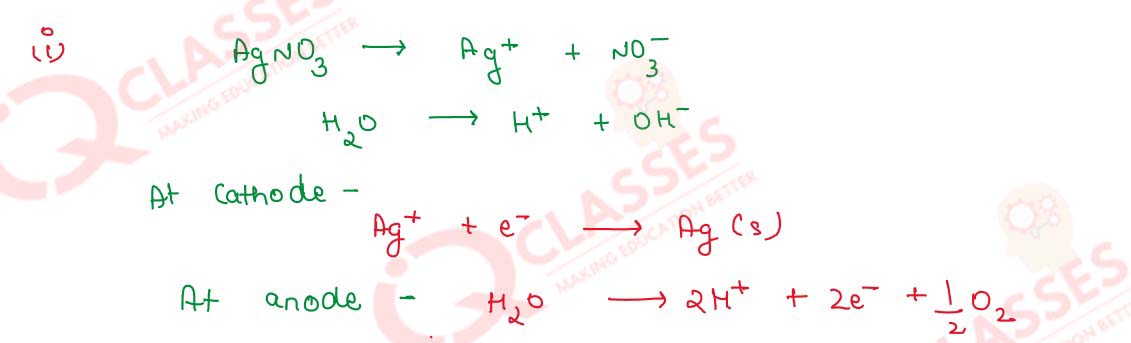 (i) AgNO₃ ⟶ Ag⁺ + NO₃⁻
H₂O ⟶ H⁺ + OH⁻
At Cathode -
Ag⁺ + e⁻ ⟶ Ag (s)
At anode - H₂O ⟶ 2H⁺ + 2e⁻ + 1/2 O₂
IQ CLASSES
MAKING EDUCATION BETTER
IQ CLASSES
MAKING EDUCATION BETTER
CLASSES
ON BETTER